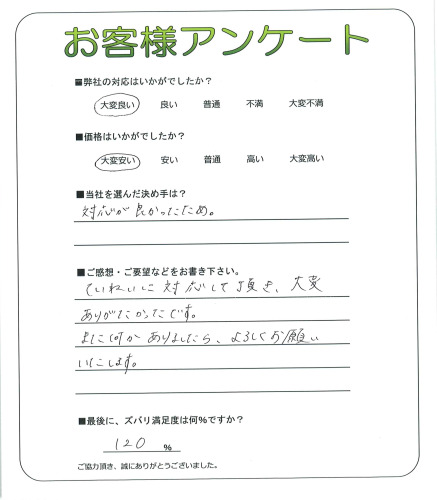 お客様アンケート
■弊社の対応はいかがでしたか？
大変良い 良い 普通 不満 大変不満
■価格はいかがでしたか？
大変安い 安い 普通 高い 大変高い
■当社を選んだ決め手は？
対応が良かったため。
■ご感想・ご要望などをお書き下さい。
ていねいに対応して頂き、大変
ありがたかったです。
また何かありましたら、よろしくお願い
いたします。
■最後に、ズバリ満足度は何％ですか？
120 %
ご協力頂き、誠にありがとうございました。